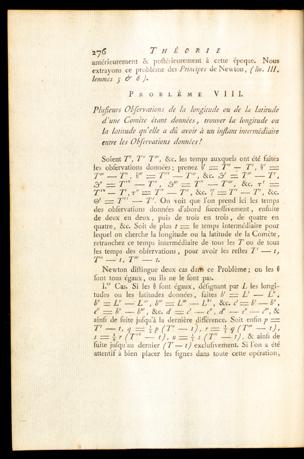 276 THÉORIE
antérieurement & postérieurement à cette époque. Nous
extrayons ce problème des Principes de Newton, (liv. III,
lemmes 5 & 6).
PROBLÊME VIII.
Plusieurs Observations de la longitude ou de la latitude
d'une Comète étant données, trouver la longitude ou
la latitude qu'elle a dû avoir à un instant intermédiaire
entre les Observations données?
Soient T', T'' T''', &c. les temps auxquels ont été faites
les observations données; prenez
&c. On voit que l'on prend ici les temps
des observations données d'abord successivement, ensuite
de deux en deux, puis de trois en trois, de quatre en
quatre, &c. Soit de plus t = le temps intermédiaire pour
lequel on cherche la longitude ou la latitude de la Comète,
retranchez ce temps intermédiaire de tous les T ou de tous
les temps des observations, pour avoir les restes T' — t,
T'' — t, T''' — t.
Newton distingue deux cas dans ce Problème; ou les θ
sont tous égaux, ou ils ne le sont pas.
I.er Cas. Si les θ sont égaux, désignant par L les longi-
tudes ou les latitudes données, faites
&c.
&c. &
ainsi de suite jusqu'à la dernière différence. Soit enfin p =
& ainsi de
suite jusqu'au dernier (T — t) exclusivement. Si l'on a été
attentif à bien placer les signes dans toute cette opération,